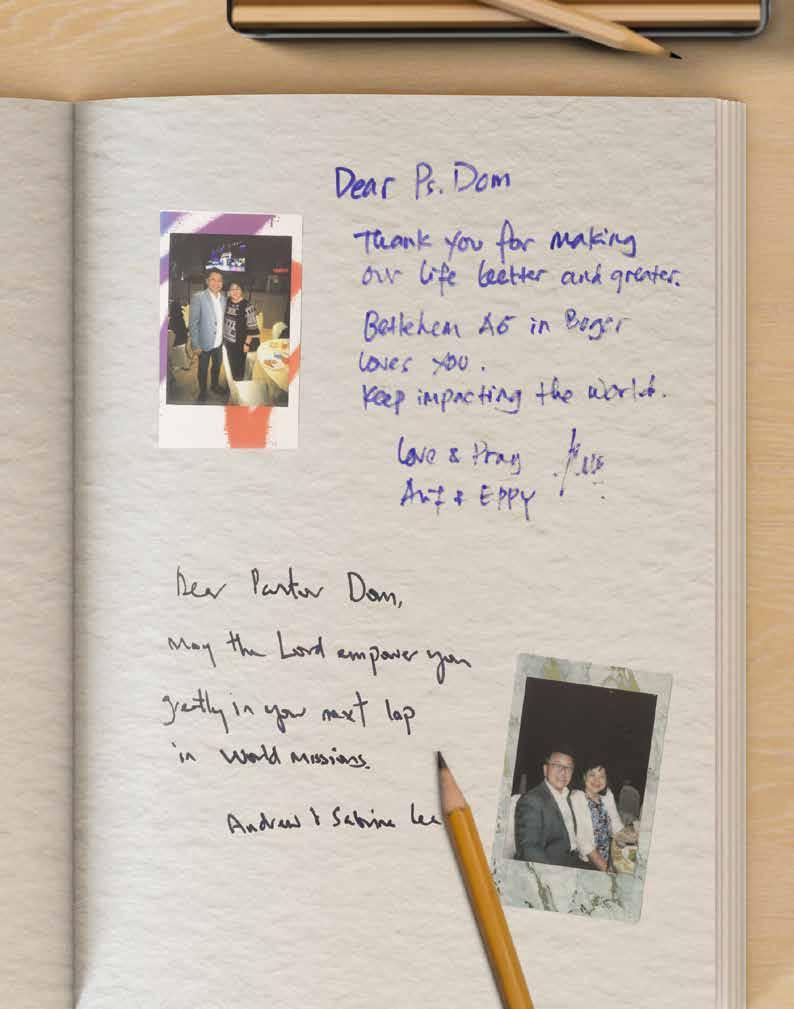 Dear Ps. Dom
Thank you for making
our life better and greater.
Betlehem AG in Bogor
loves you.
Keep impacting the world.
Love & Pray
& EPPY
Dear Pastor Dom,
may the Lord empower you
greatly in your next lap
in World Missions.
Andrew & Sabrina Lee